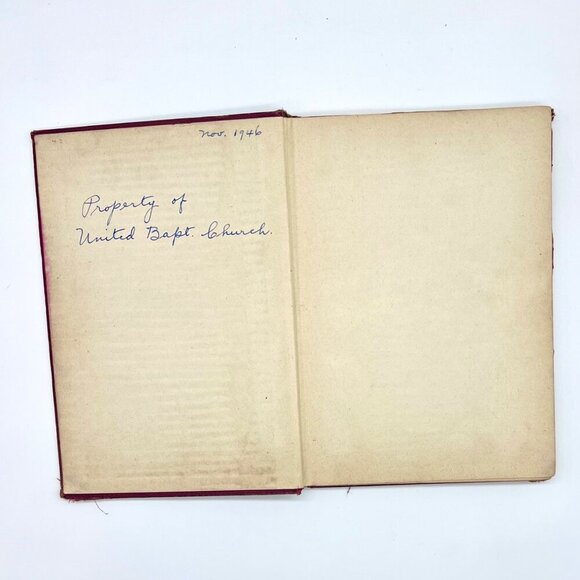 Nov. 1946
Property of
United Bapt. Church.